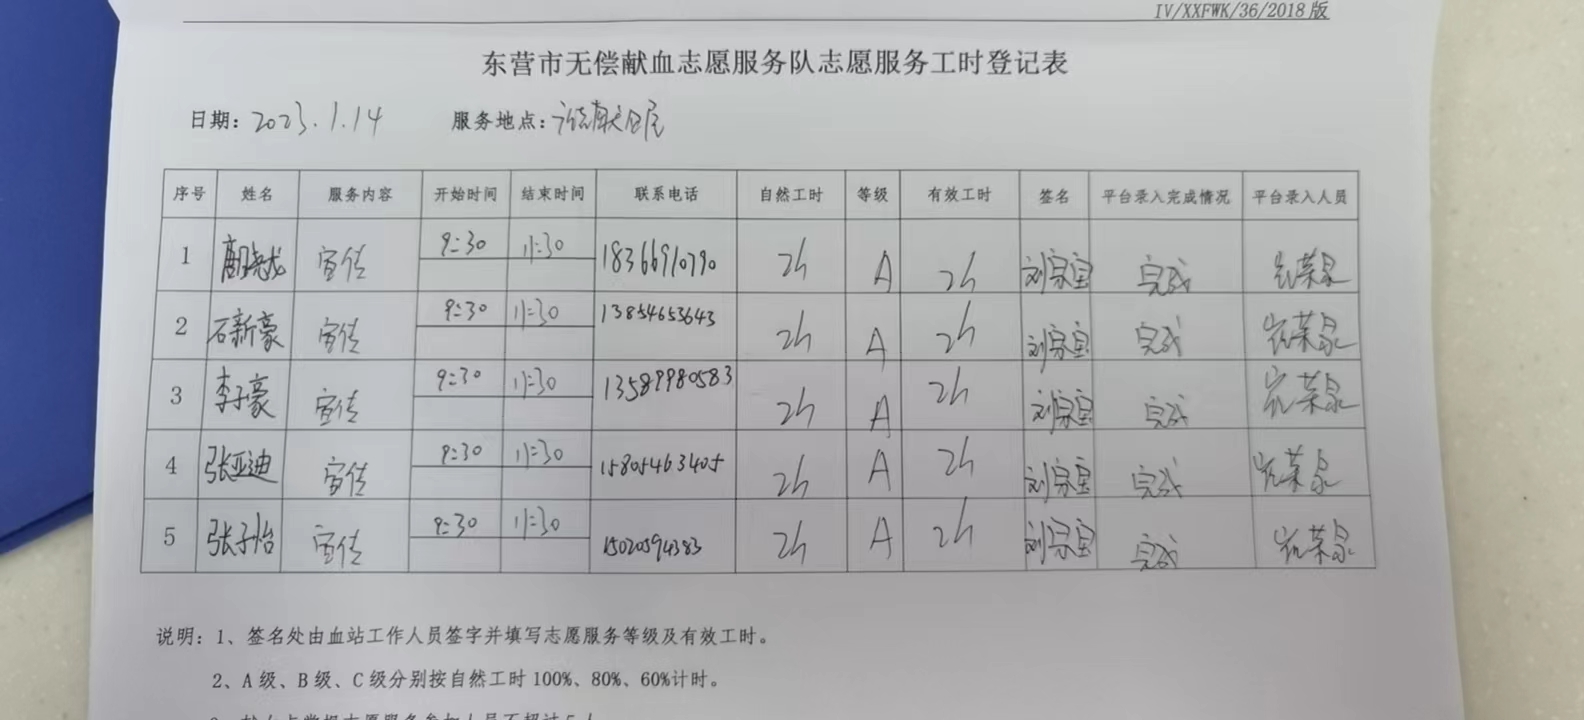 IV/XXFWK/36/2018版
东营市无偿献血志愿服务队志愿服务工时登记表
日期: 2023.1.14 服务地点:
序号 姓名 服务内容 开始时间 结束时间 联系电话 自然工时 等级 有效工时 签名 平台录入完成情况 平台录入人员
1 宣传 9:30 11:30 18366910790 2h A 2h 刘宗宝 完成 荣泉
2 石新豪 宣传 9:30 11:30 13854653643 2h A 2h 刘宗宝 完成 荣泉
3 李子豪 宣传 9:30 11:30 13589980583 2h A 2h 刘宗宝 完成 荣泉
4 张亚迪 宣传 9:30 11:30 15805463405 2h A 2h 刘宗宝 完成 荣泉
5 张子怡 宣传 9:30 11:30 15020594383 2h A 2h 刘宗宝 完成 荣泉
说明: 1、签名处由血站工作人员签字并填写志愿服务等级及有效工时。
2、A级、B级、C级分别按自然工时100%、80%、60%计时。